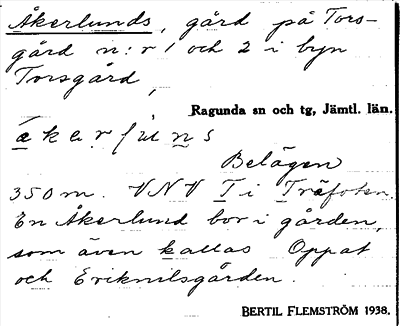 Åkerlunds, gård på Tors-
gård n:r 1 och 2 i byn
Torsgård,
Ragunda sn och tg, Jämtl. län.
Belägen
350 m. VNV T i Träfoten.
En Åkerlund bor i gården,
som även kallas Oppat
och Eriknilsgården.
BERTIL FLEMSTRÖM 1938.